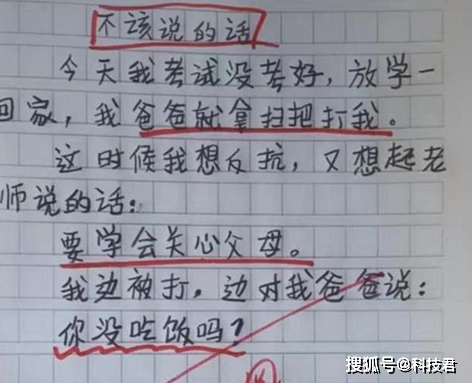 不该说的话
今天我考试没考好，放学一
回家，我爸爸就拿扫把打我。
这时候我想反抗，又想起老
师说的话：
要学会关心父母。
我边被打，边对我爸爸说：
你没吃饭吗？
搜狐号@科技君